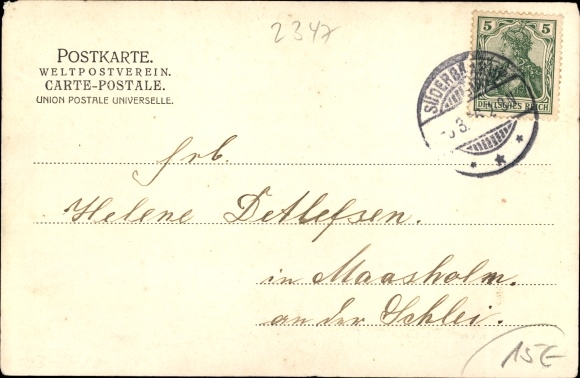 2347
POSTKARTE.
WELTPOSTVEREIN.
CARTE-POSTALE.
UNION POSTALE UNIVERSELLE.
5 5
DEUTSCHES REICH
Helene Detlefsen.
in Maasholm.
an der Schlei.
15E